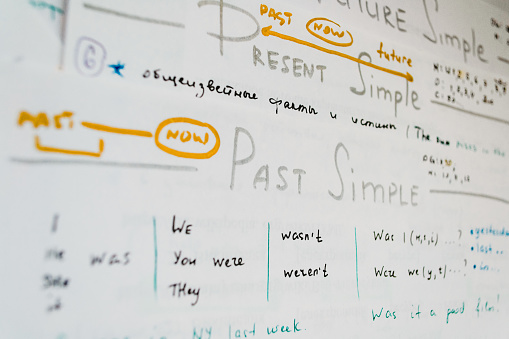 FUTURE SIMPLE
PAST NOW future
PRESENT SIMPLE
6 * общеизвестные факты и истины / The sun rises in the
PAST NOW
PAST SIMPLE
I WE wasn't Was I (h, s, i) ...? • yesterday
He was You were weren't Were we (y, t) ...? • last ..
She THey • in ...
it Was it a good film!
NY last week.